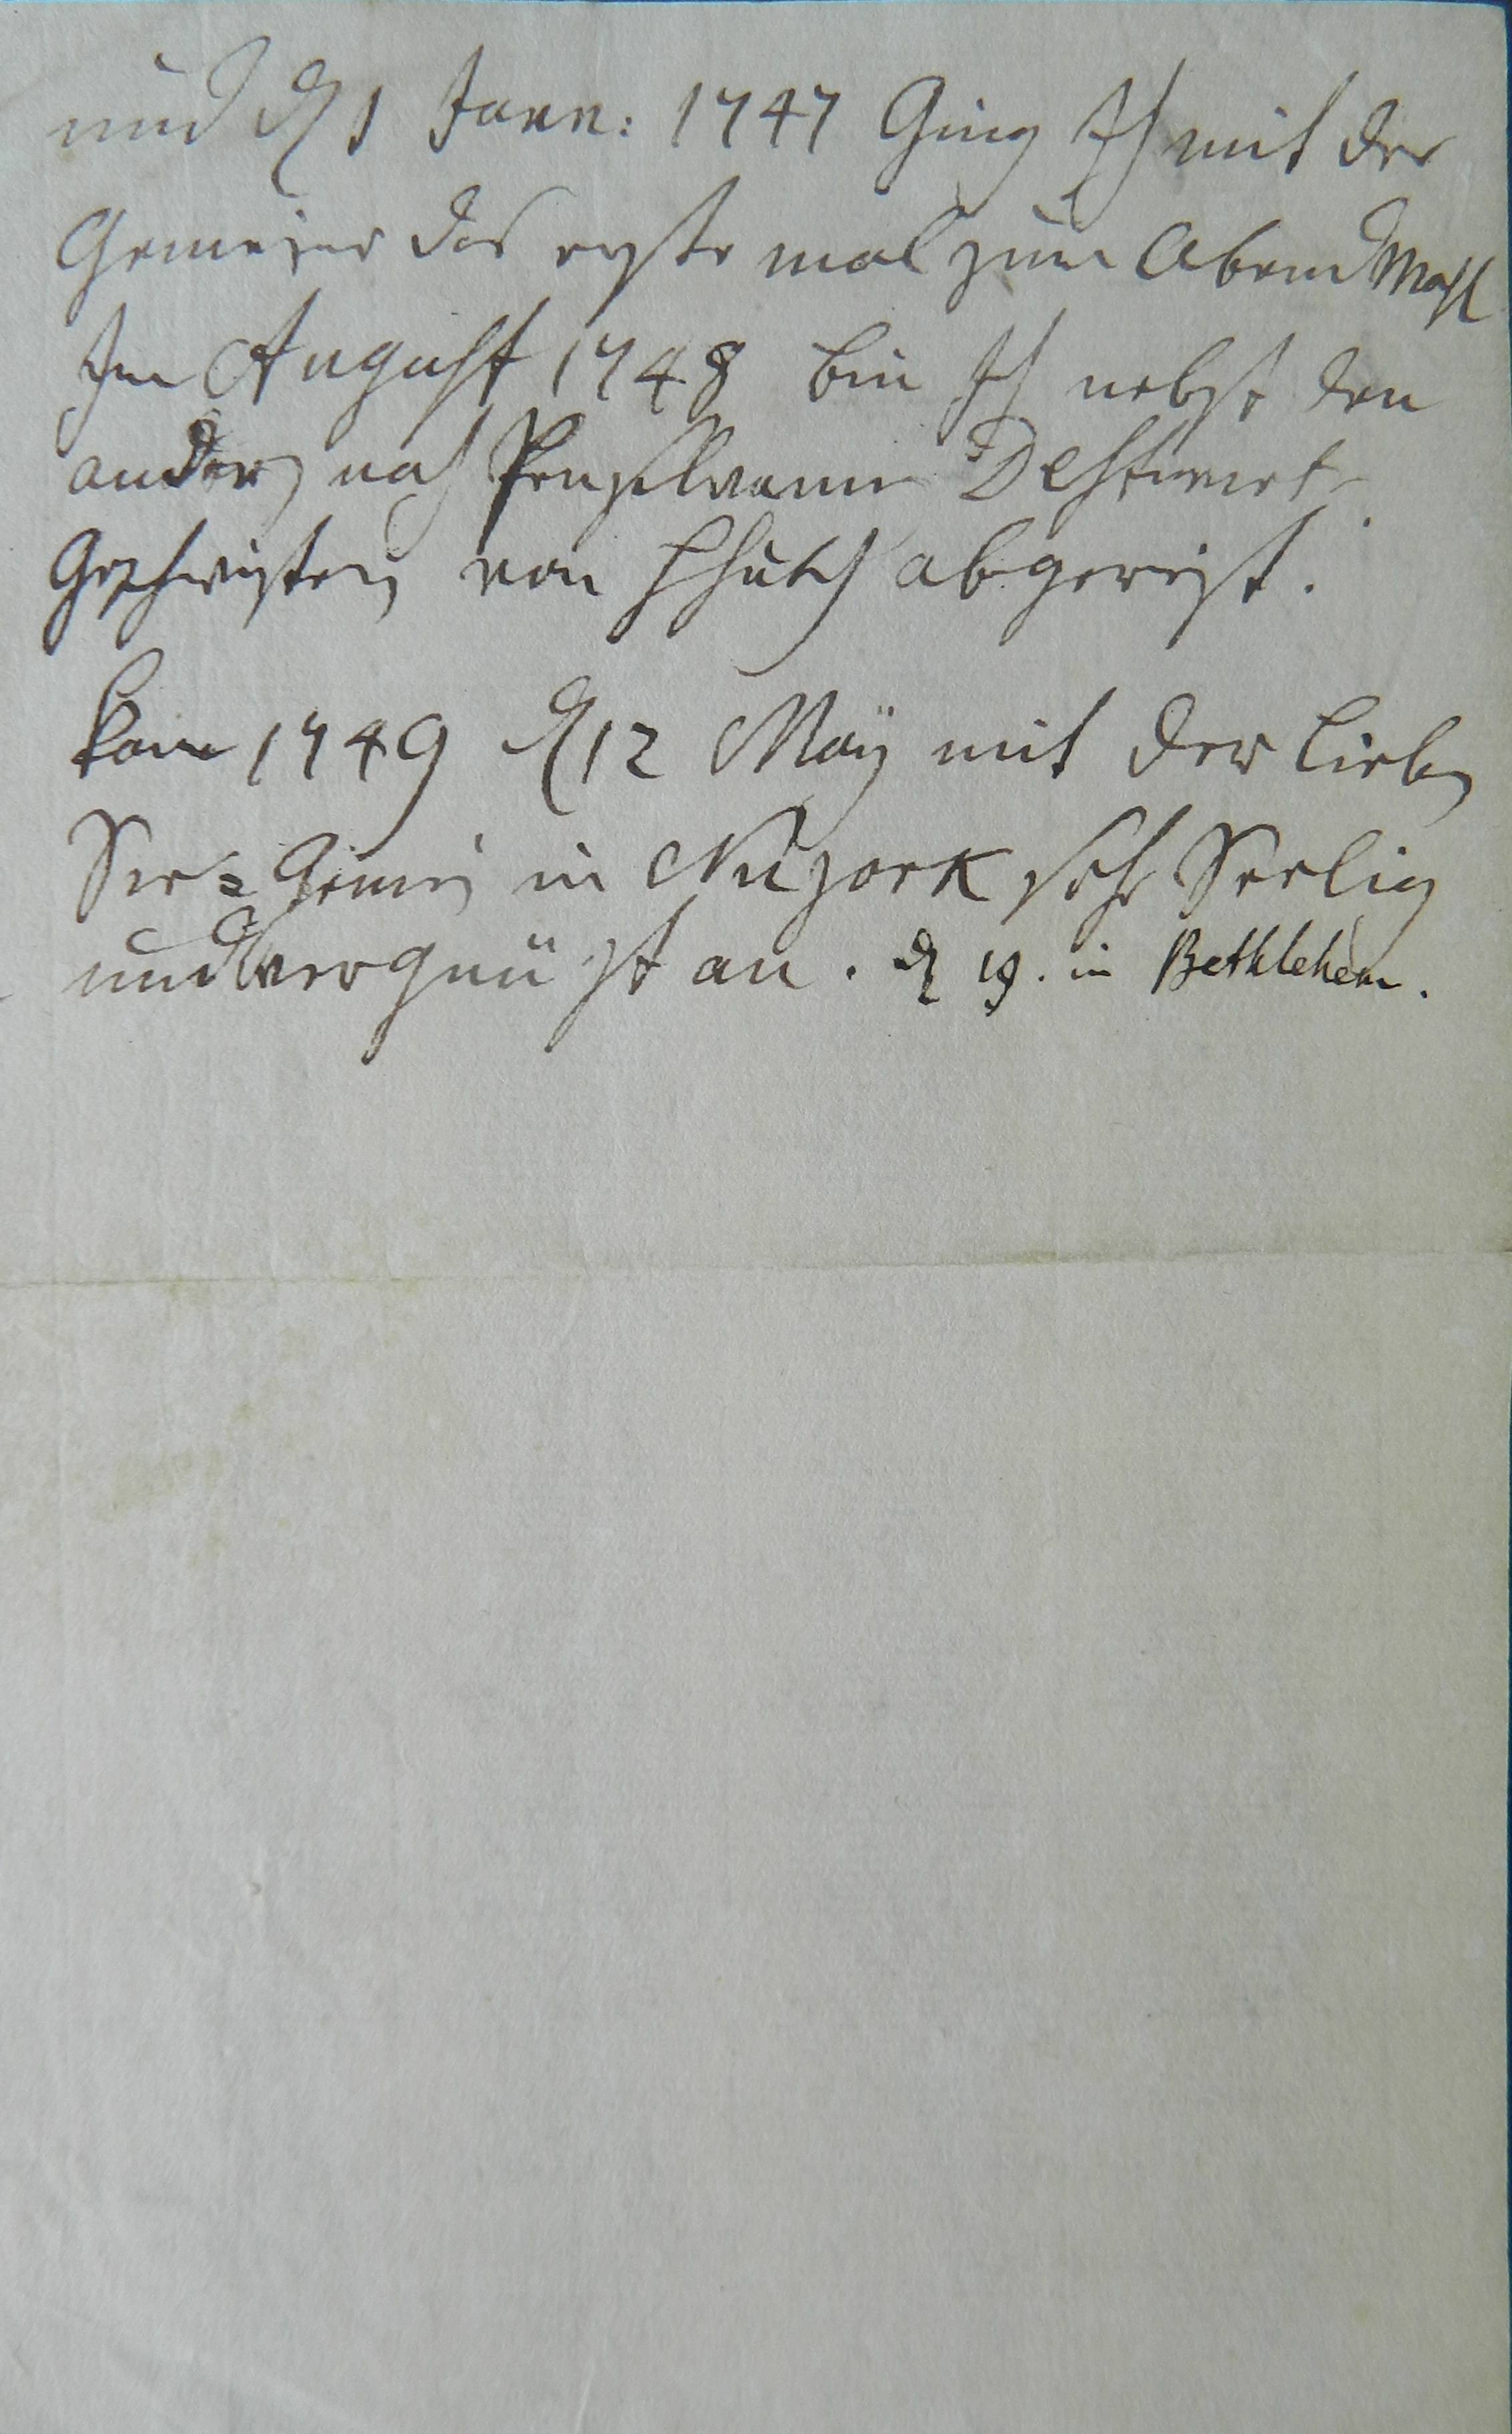 und d 1 Jann: 1747 Ging Ich mit der
Gemeine das erste mal zum AbendMahl
Im August 1748 bin Ich nebst den
andern nach Pensilvanien Destinirte
Geschwistern von abgereist.
kam 1749 d 12 Maÿ mit der Lieben
See= Gemei in Nujork sehr Seelig
und vergnügt an. d 19. in Bethlehem.